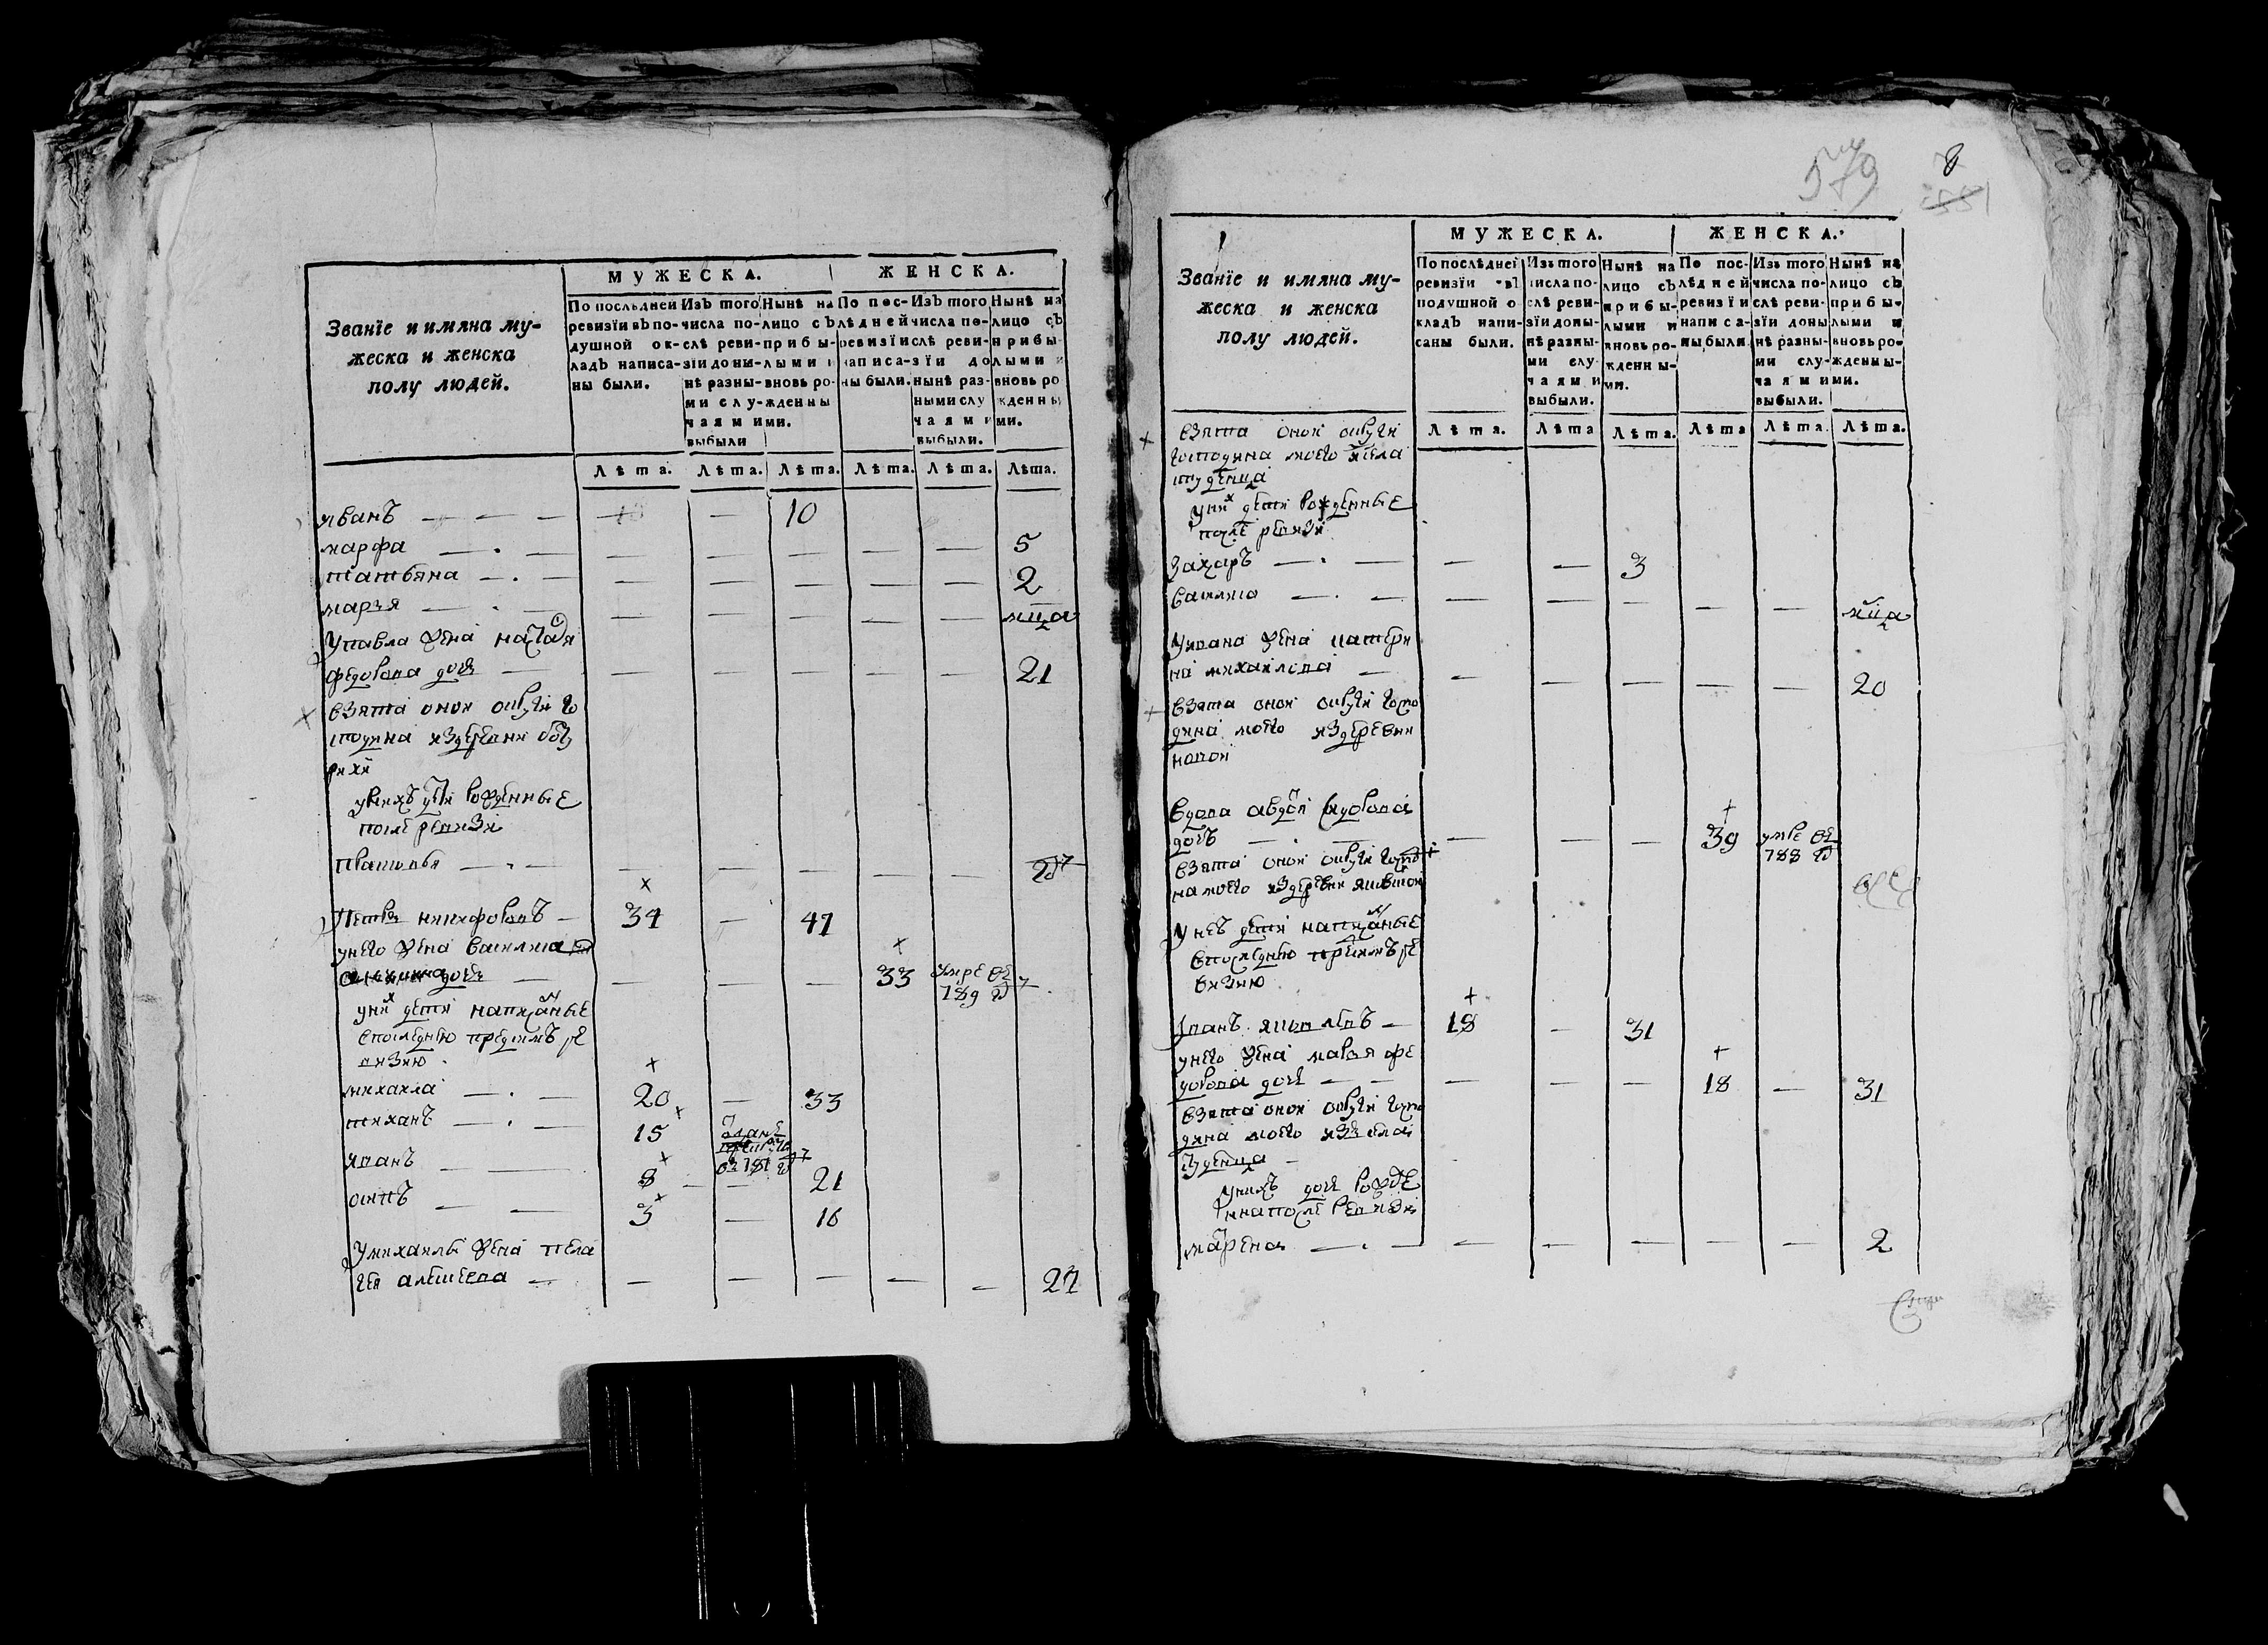 Званїе и имяна му-
жеска и женска
полу людей.
МУЖЕСКА.
ЖЕНСКА.
По послѣдней
ревизїи въ по-
душной ок-
ладъ написа-
ны были.
Изъ того
числа по-
слѣ реви-
зїи доны-
нѣ разны-
ми слу-
чаями
выбыли
Нынѣ на
лицо съ
прибы-
лыми и
вновь ро-
жденны
ми.
По пос-
лѣдней
ревизїи
написа-
ны были.
Изъ того
числа по-
слѣ реви-
зїи до
нынѣ раз-
ными слу
чаями
выбыли.
Нынѣ на
лицо съ
прибы-
лыми и
вновь ро
жденны
ми.
Лѣта. Лѣта. Лѣта. Лѣта. Лѣта. Лѣта.
иванъ — — — — 10
марфа — — — — — — — 5
татьяна — — — — — — — 2
марья — — — — — — мца
Упавла жена наталя
федорова дочь — — — — — — 21
взята оной округи го
сподина издеревни
унихъ дети рожденные
после ревизи
— — — — — —
Петръ никифоровъ — 34 — 47
унего жена василиса
дочь — — — — 33 умре въ
789 г
уних дети написаные
споследнюю пред симъ ре
визию
михаила — 20 — 33
тиханъ — 15
въ 787 г
иванъ — 8 — — 21
осипъ — — 3 — 16
Умихаилы жена пела
гея алексеева — — — — — — 27
579 8
551
Званїе и имяна му-
жеска и женска
полу людей.
МУЖЕСКА.
ЖЕНСКА.
По послѣдней
ревизїи въ
подушной о-
кладъ напи-
саны были.
Изъ того
числа по-
слѣ реви-
зїи доны-
нѣ разны-
ми слу-
чаями
выбыли.
Нынѣ на
лицо съ
прибы-
лыми и
вновь ро-
жденны-
ми.
По пос-
лѣдней
ревизїи
написа-
ны были.
Изъ того
числа по-
слѣ реви-
зїи доны
нѣ разны-
ми слу-
чаями
выбыли.
Нынѣ на
лицо съ
прибы-
лыми и
вновь ро-
жденны-
ми.
Лѣта. Лѣта Лѣта. Лѣта Лѣта. Лѣта.
взята оной округи
господина моего исела
студенца
уних дети рожденные
после ревизи
Захаръ — — — — 3
василиса — — — — — — — мца
Уивана жена катери
на михаилова — — — — — — 20
взята оной округи госпо
дина моего издеревни
новой
вдова авдотя
дочь — — — — 39 умре въ
788 г
взята оной округи
на моего издеревни
Унеъ дети написаные
споследнюю пред симъ ре
визию
Иванъ — 18 — 31
унего жена марья фе
дорова дочь — — — — 18 — 31
взята оной округи госпо
дина моего изъ села
студенца
унихъ дочь рожде
нна после ревизи
матрена — — — — — — — 2